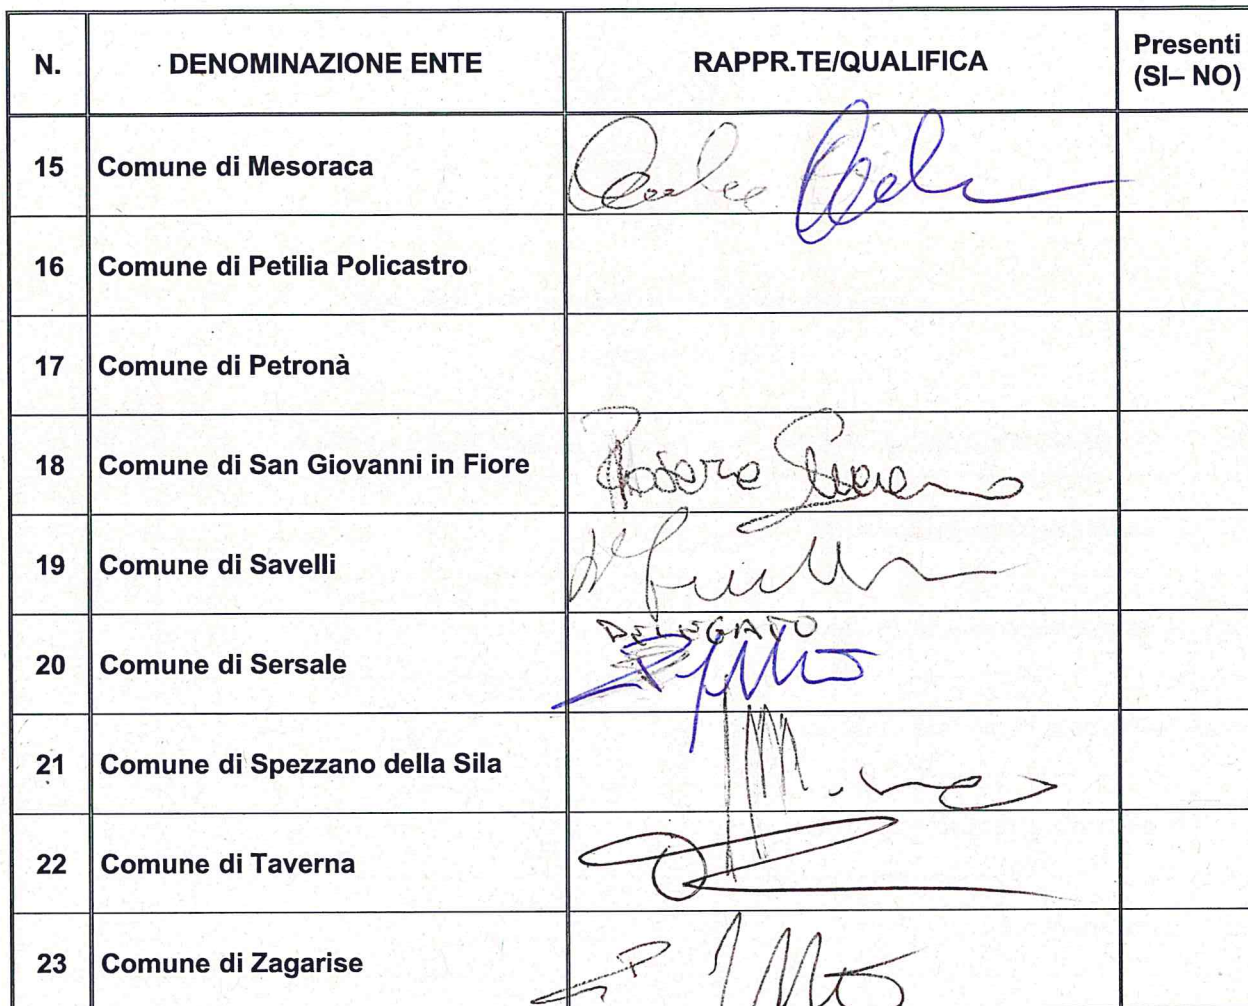 N. DENOMINAZIONE ENTE RAPPR.TE/QUALIFICA Presenti
(SI– NO)
15 Comune di Mesoraca
16 Comune di Petilia Policastro
17 Comune di Petronà
18 Comune di San Giovanni in Fiore
19 Comune di Savelli
DELEGATO
20 Comune di Sersale
21 Comune di Spezzano della Sila
22 Comune di Taverna
23 Comune di Zagarise